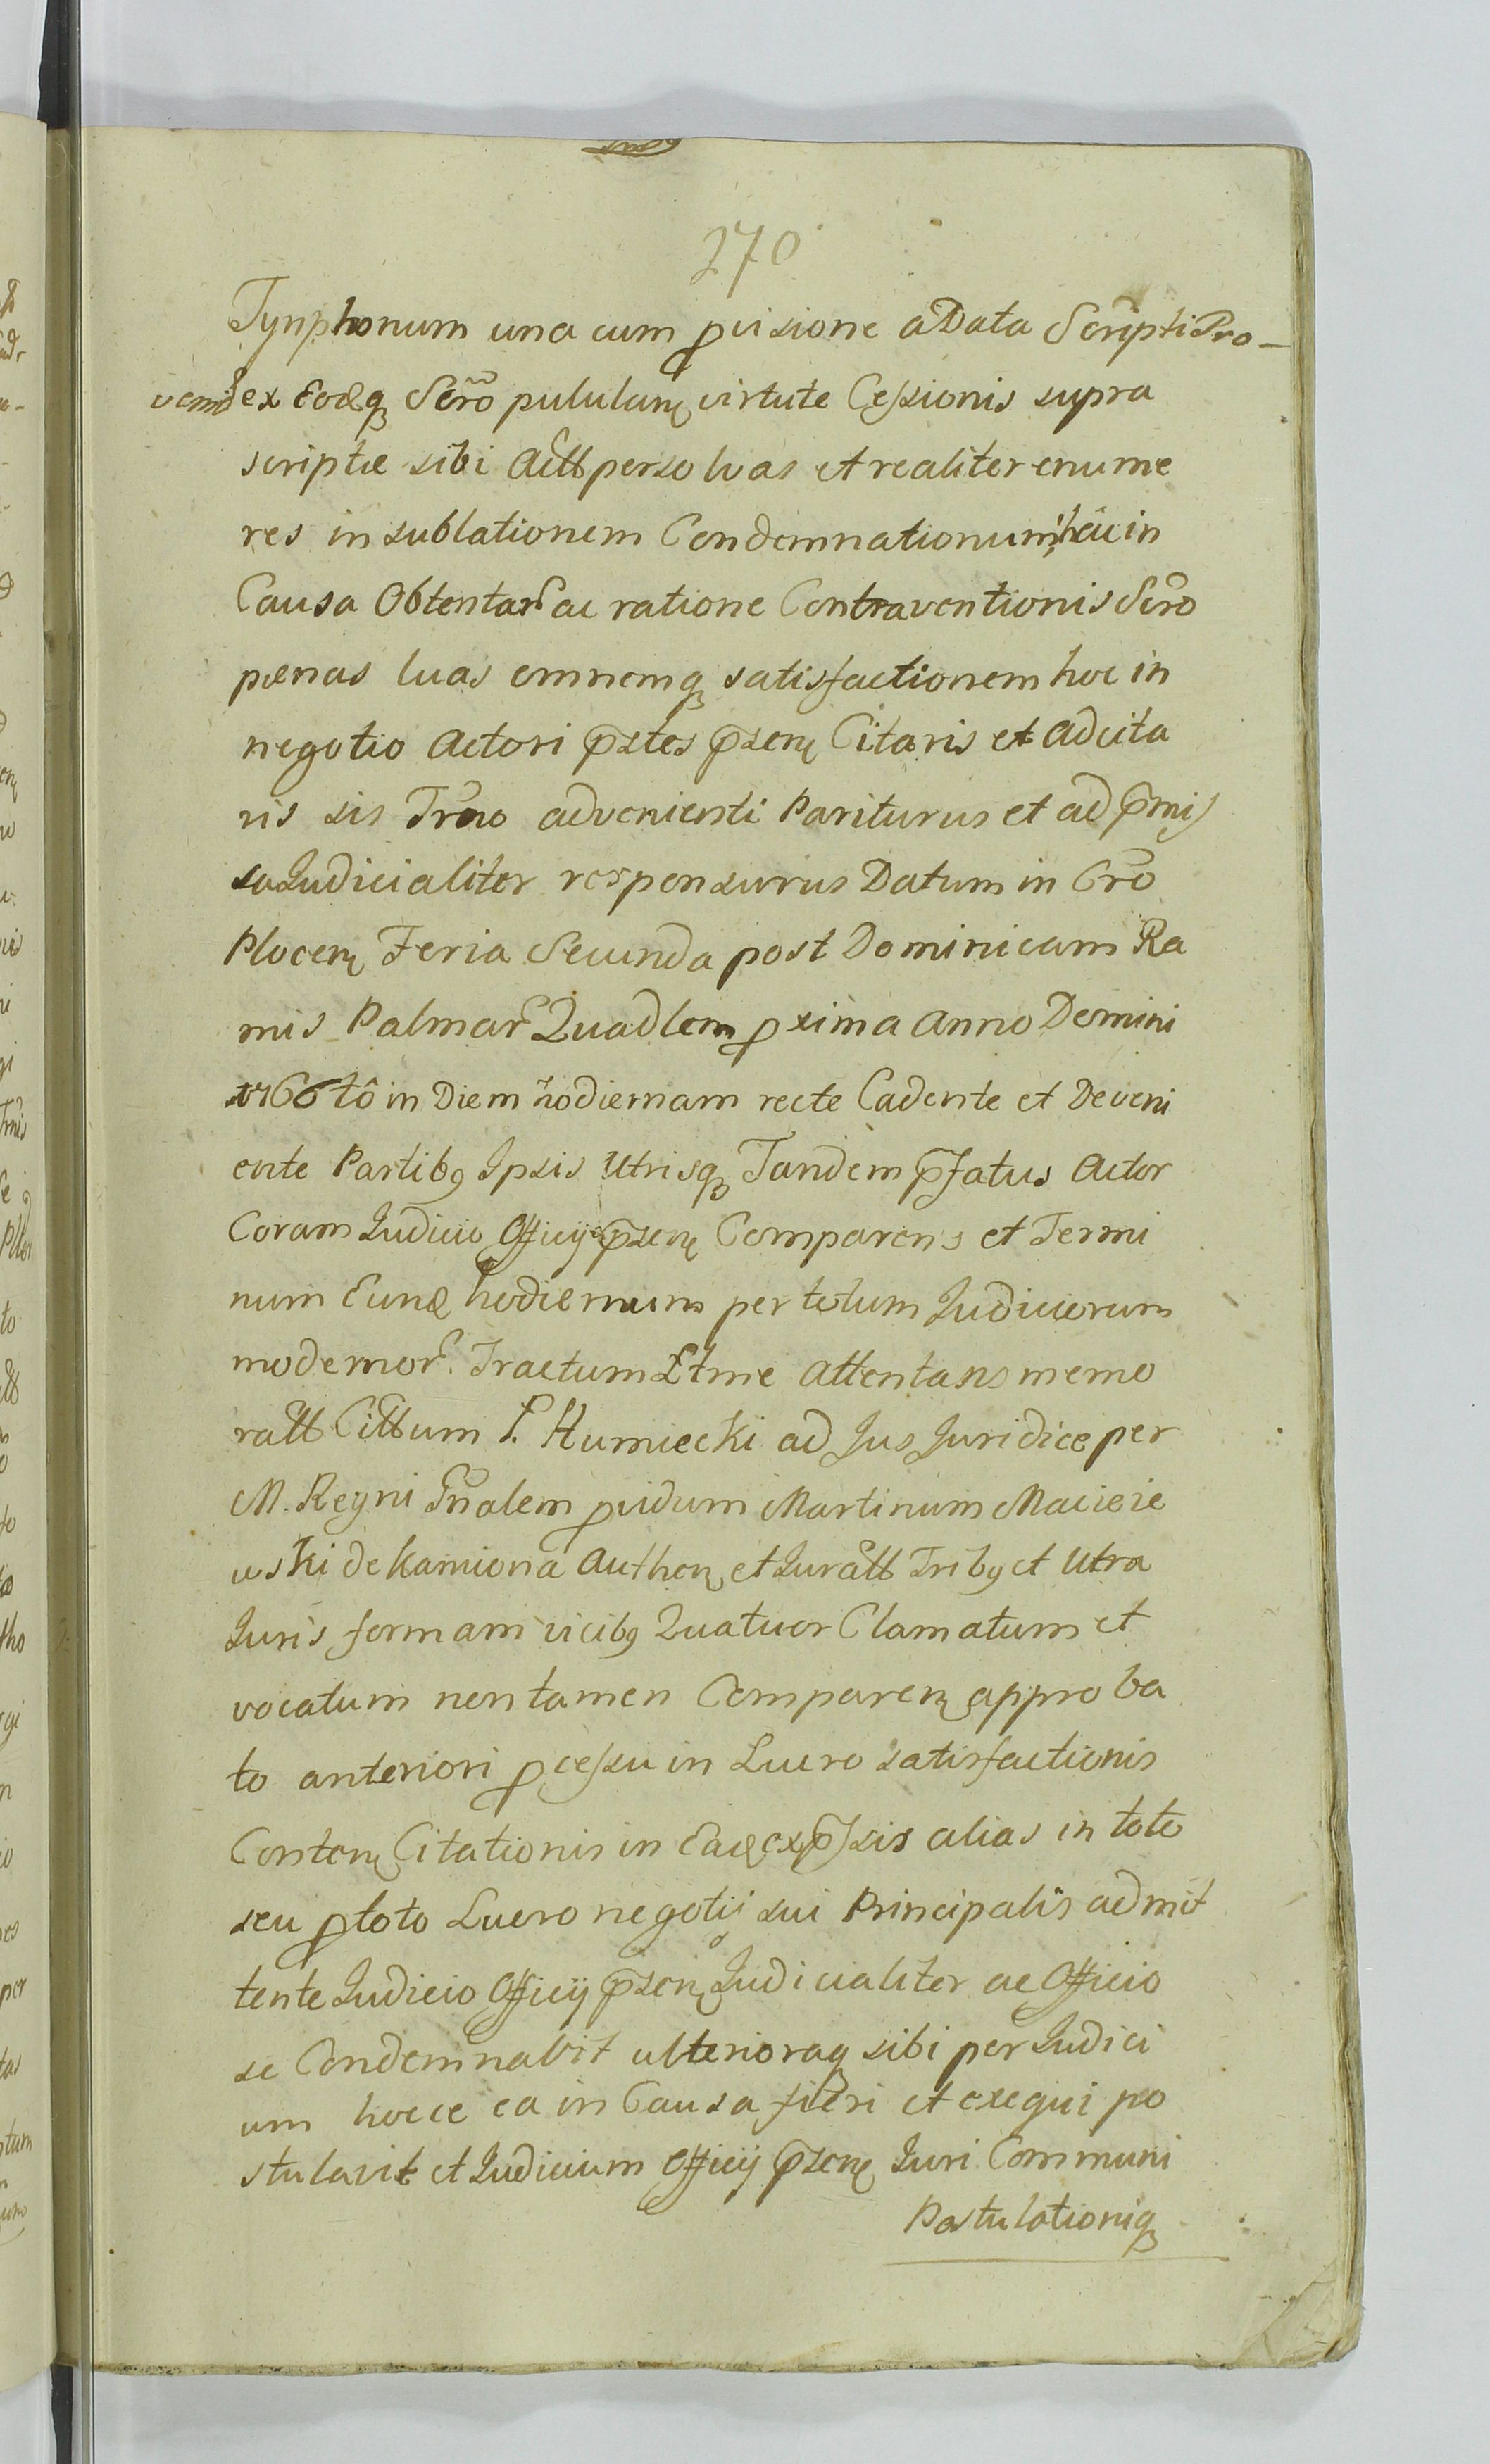 270
Tynphonum una cum pvisione a Data Scripti Pro-
venien ex Eodq Scro pululan virtute Cessionis supra
scriptæ sibi Actt persolvas et realiter enume
res in sublationem Condemnationum hac in
Causa Obtentar ac ratione Contraventionis Scro
pænas luas omnemq satisfactionem hoc in
negotio Actori pstes psen Citaris et adcita
ris sis Trno advenienti Pariturus et ad pmis
sa Judicialiter responsurus Datum in Cro
Plocen Feria Secunda post Dominicam Ra
mis Palmar Quadlem pxima Anno Domini
1766tô in Diem hodiernam recte Cadente et Deveni
ente Partibg Ipsis Utrisq Tandem pfatus Actor
Coram Judicio Officij psen Comparens et Termi
num Eund hodiernum per totum Judiciorum
modernor. Tractum Ltme attentans memo
ratt Cittum P. Humiecki ad Jus Juridice per
M. Regni Gnalem pvidum Martinum Macieie
wski de Kamiona Authen et Juratt Tribg et Utra
Juris formam vicibg Quatuor Clamatum et
vocatum non tamen Comparen approba
to anteriori pcessu in Lucro satisfactionis
Conten Citationis in Ead expssis alias in toto
seu p toto Lucro negotii sui Principalis admit
tente Judicio Officij psen Judicialiter ac Officio
se Condemnabit ulterioraq sibi per Judici
um hocce ea in Causa fieri et exequi po
stulavit et Judicium Officij psen Juri Communi
Postulationiq